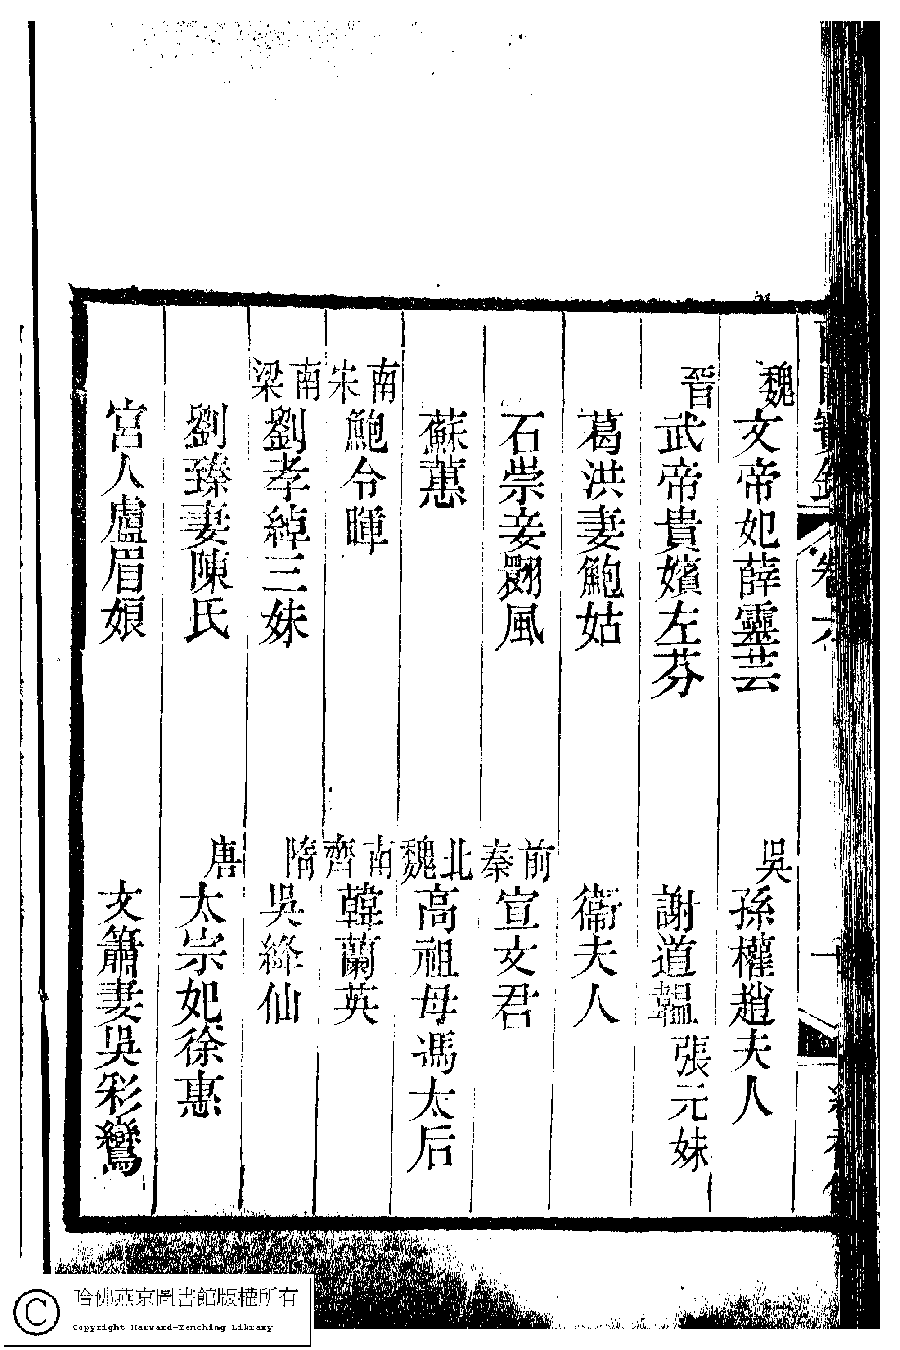 魏文帝妃薛靈芸 吳孫權趙夫人
晉武帝貴嬪左芬 謝道韞張元妹
葛洪妻鮑姑 衞夫人
石崇妾翾風 前秦宣文君
蘇蕙 北魏高祖母馮太后
南宋鮑令暉 南齊韓蘭英
南梁劉孝綽三妹 隋吳絳仙
劉臻妻陳氏 唐太宗妃徐惠
宮人盧眉娘 文簫妻吳彩鸞
哈佛燕京圖書館版權所有
Copyright Harvard-Yenching Library